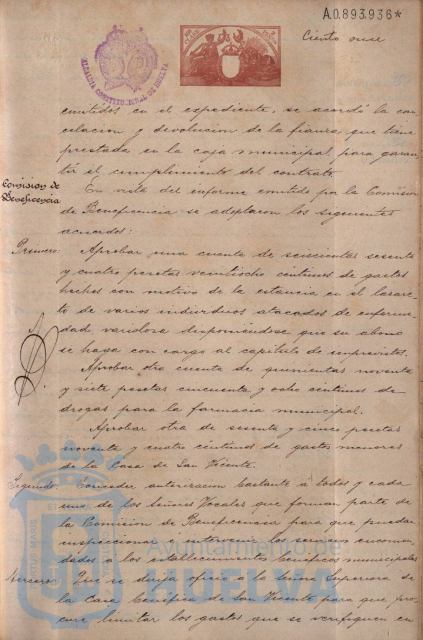 A.0.893.936*
Ciento once
ALCALDIA CONSTITUCIONAL DE HUELVA
emitidos en el expediente, se acordó la can
celacion y devolucion de la fianza que tiene
prestada en la caja municipal para garan
tir el cumplimiento del contrato.
Comision de
Beneficencia
En vista del informe emitido por la Comision
de Beneficencia se adoptaron los siguientes
acuerdos:
Primero: Aprobar una cuenta de seiscientas sesenta
y cuatro pesetas veintiocho centimos de gastos
hechos con motivo de la estancia en el lazare
to de varios individuos atacados de enferme
dad variolosa disponiendose que su abono
se haga con cargo al capitulo de imprevistos.
Aprobar otra cuenta de quinientas noventa
y siete pesetas cincuenta y ocho centimos de
drogas para la farmacia municipal.
Aprobar otra de sesenta y cinco pesetas
noventa y cuatro centimos de gastos menores
de la Casa de San Vicente.
Segundo: Conceder autorizacion bastante á todos y cada
uno de los Señores Vocales que forman parte de
la Comision de Beneficencia para que puedan
inspeccionar é intervenir los servicios encomen
dados á los establecimientos beneficos municipales
Tercero: Que se dirija oficio á la Señora Superiora de
la Casa benéfica de San Vicente para que pro
cure limitar los gastos que se verifiquen en
Ayuntamiento de
HUELVA